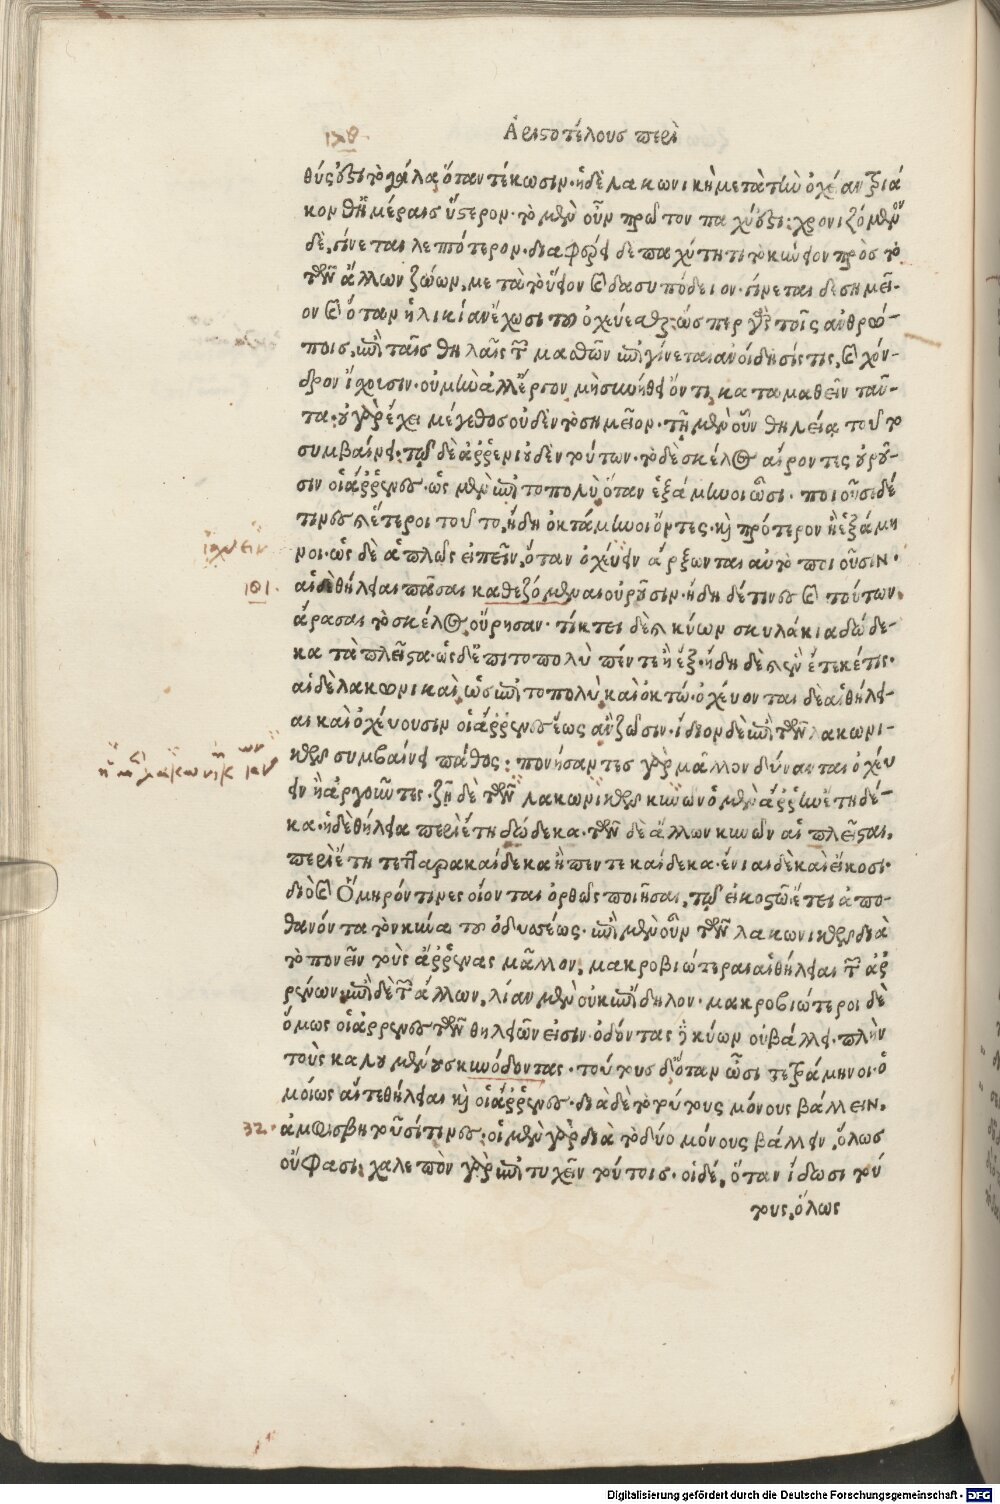 Ἀριστοτέλους περὶ
θύς ἴσχει τὸ γάλα ὅταν τέκωσιν. ἡ δὲ λακωνικὴ μετὰ τὴν ὀχείαν τριά
κονθ' ἡμέραις ὕστερον. τὸ μὲν οὖν πρῶτον παχύ ἐστι: χρονιζόμενον
δὲ, γίνεται λεπτότερον. διαφέρει δὲ παχύτητι τὸ κύνειον πρὸς τὸ
τῶν ἄλλων ζώων, μετὰ τὸ ὕειον καὶ δασυπόδειον. γίνεται δὲ σημεῖ-
ον καὶ ὅταν ἡλικίαν ἔχωσι τοῦ ὀχεύεσθαι: ὥσπερ γὰρ τοῖς ἀνθρώ-
ποις, ἐπὶ ταῖς θηλαῖς τῶν μασθῶν ἐπιγίνεται ἀνοίδησίς τις, καὶ χόν-
δρον ἴσχουσιν. οὐ μὴν ἀλλ' ἔργον μὴ συνήθει ὄντι, καταμαθεῖν ταῦ-
τα. οὐ γὰρ ἔχει μέγεθος οὐδὲν τὸ σημεῖον. τῇ μὲν οὖν θηλείᾳ τοῦτο
συμβαίνει. τῷ δὲ ἄρρενι οὐδὲν τούτων. τὸ δὲ σκέλος αἴροντες οὐροῦ-
σιν οἱ ἄρρενες. ὡς μὲν ἐπιτοπολὺ ὅταν ἑξάμηνοι ὦσι. ποιοῦσι δέ
τινες ἕτεροι τοῦτο, ἤδη ὀκτάμηνοι ὄντες. καὶ πρότερον ἢ ἑξάμη
νοι. ὡς δὲ ἁπλῶς εἰπεῖν, ὅταν ὀχεύειν ἄρξωνται αὐτὸ ποιοῦσιν.
ἰσχύειν
αἱ δὲ θήλειαι πᾶσαι καθεζόμεναι οὐροῦσιν. ἤδη δέ τινες καὶ τούτων
101.
ἄρασαι τὸ σκέλος, οὔρησαν. τίκτει δὲ κύων σκυλάκια δώδε-
κα τὰ πλεῖστα. ὡς δ' ἐπιτοπολὺ πέντε ἢ ἕξ. ἤδη δὲ καὶ ἓν ἔτεκέ τις.
αἱ δὲ λακωνικαὶ ὡς ἐπιτοπολὺ καὶ ὀκτώ. ὀχεύονται δὲ αἱ θήλει-
αι καὶ ὀχεύουσιν οἱ ἄρρενες ἕως ἂν ζῶσιν. ἴδιον δὲ ἐπὶ τῶν λακωνι-
κῶν συμβαίνει πάθος: πονήσαντες γὰρ μᾶλλον δύνανται ὀχεύ
ειν ἢ ἀργοῦντες. ζῇ δὲ τῶν λακωνικῶν κυνῶν ὁ μὲν ἄρρην ἔτη δέ-
κα. ἡ δὲ θήλεια περὶ ἔτη δώδεκα. τῶν δὲ ἄλλων κυνῶν αἱ πλεῖσται,
περὶ ἔτη τετταρακαίδεκα ἢ πεντεκαίδεκα. ἔνιαι δὲ καὶ εἴκοσι.
διὸ καὶ Ὅμηρόν τινες οἴονται ὀρθῶς ποιῆσαι, τῷ εἰκοστῷ ἔτει ἀπο-
θανόντα τὸν κύνα τοῦ ὀδυσσέως. ἐπὶ μὲν οὖν τῶν λακωνικῶν διὰ
τὸ πονεῖν τοὺς ἄρρενας μᾶλλον, μακροβιώτεραι αἱ θήλειαι τῶν ἀρ
ρένων. ἐπὶ δὲ τῶν ἄλλων, λίαν μὲν οὐκ ἐπίδηλον. μακροβιώτεροι δὲ
ὅμως οἱ ἄρρενες τῶν θηλειῶν εἰσιν. ὀδόντας ἡ κύων οὐ βάλλει. πλὴν
τοὺς καλουμένους κυνόδοντας. τούτους δ' ὅταν ὦσι τετράμηνοι. ὁ
μοίως αἵ τε θήλειαι καὶ οἱ ἄρρενες. διὰ δὲ τὸ τούτους μόνους βάλλειν,
32.
ἀμφισβητοῦσί τινες. οἱ μὲν γὰρ διὰ τὸ δύο μόνους βάλλειν, ὅλως
οὔ φασι: χαλεπὸν γὰρ ἐπιτυχεῖν τούτοις. οἱ δέ, ὅταν ἴδωσι τού
τους, ὅλως
Digitalisierung gefördert durch die Deutsche Forschungsgemeinschaft - DFG